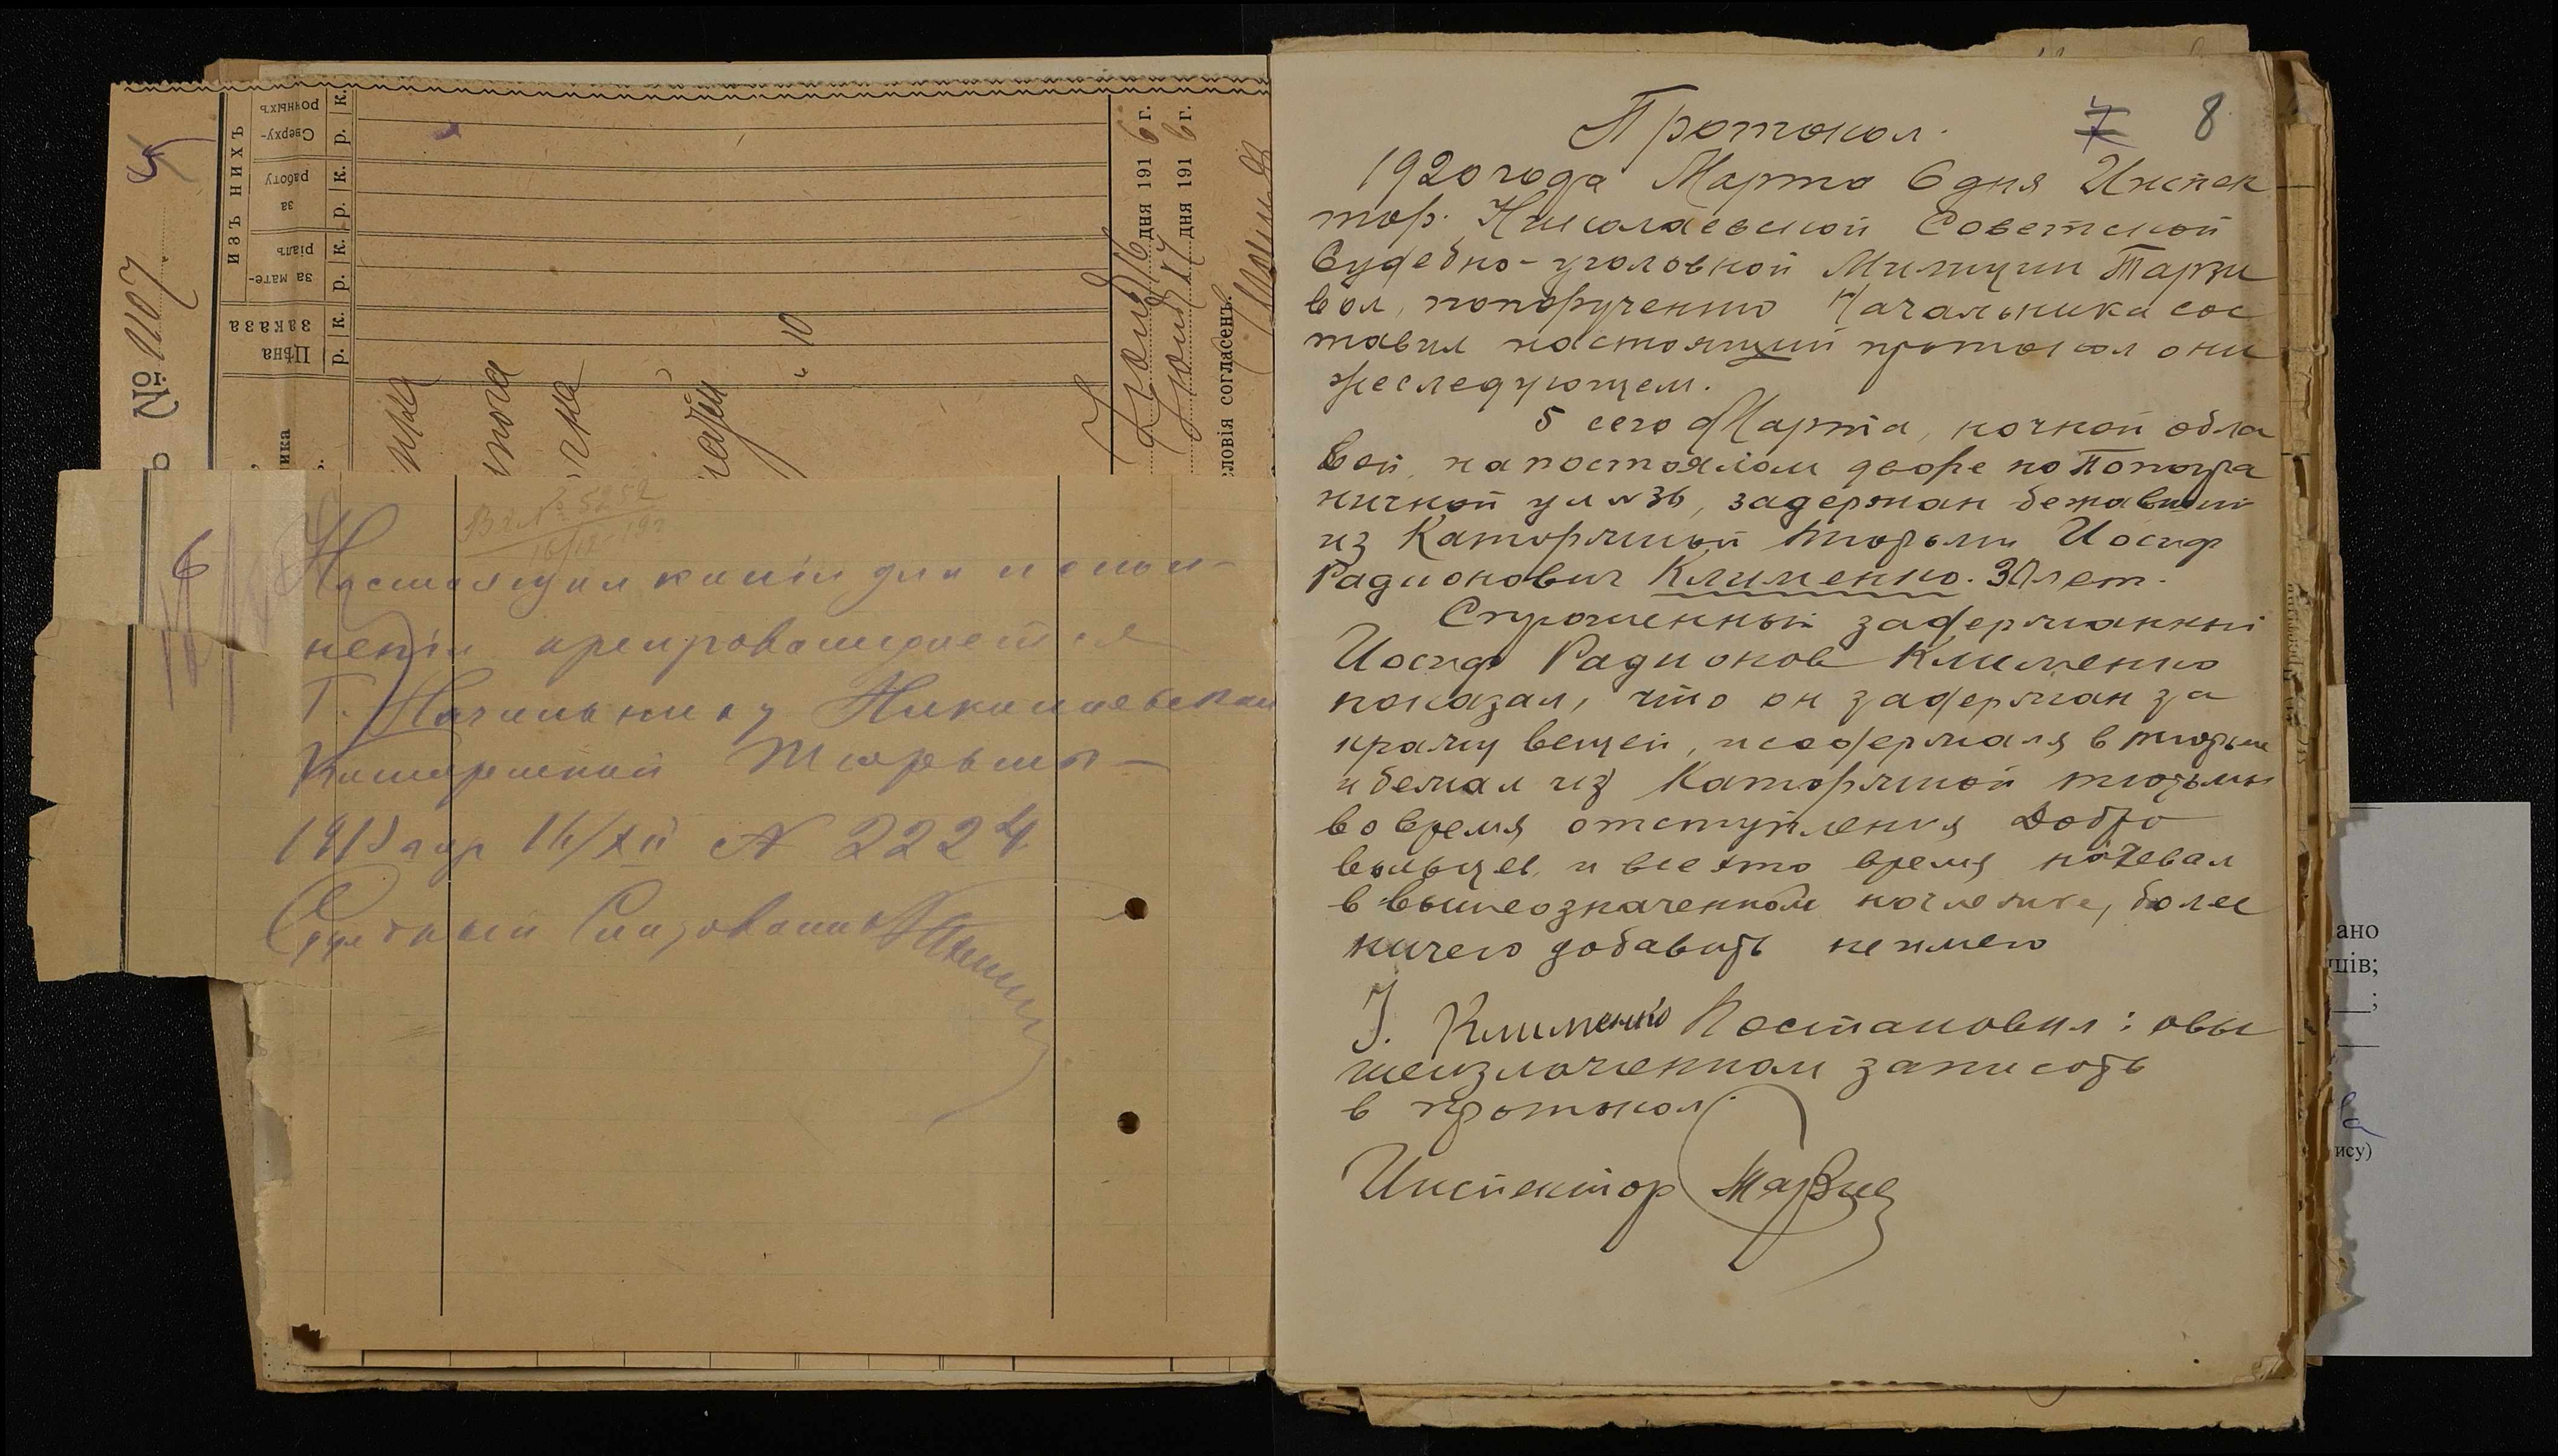 № 1107
5
ИЗЪ НИХЪ
Сверху-
рочныхъ
за
работу
за мате-
ріалъ
Цѣна
заказа
р. к. р. к. р. к. р. к.
" 10
дня 1916 г.
дня 1916 г.
ловія согласенъ.
Вх № 5252
6
Настоящая копія для испол-
ненія препровождается
Г. Начальнику Николаевской
Каторжной Тюрьмы
16/XII № 2224
Судебный Следователь
7 8
Протокол.
1920 года Марта 6 дня Инспек
тор Николаевской Советской
Судебно-уголовной Милиции
по поручению Начальника сос
тавил настоящий протокол о ни
жеследующем.
5 сего Марта, ночной обла
вой, на постоялом дворе по Погра
ничной ул № 36, задержан бежавший
из Каторжной тюрьмы Иосиф
Радионович Клименко. 30 лет.
Спрошенный задержанный
Иосиф Радионов Клименко
показал, что он задержан за
кражу вещей, и содержался в тюрьме
и бежал из Каторжной тюрьмы
во время отступления Добро
вольцев, и все это время ночевал
в вышеозначенном ночлежке, более
ничего добавить не имею
І. Клименко Постановил: о вы
шеизложенном записать
в протокол.
Инспектор
ано
шів;
ису)